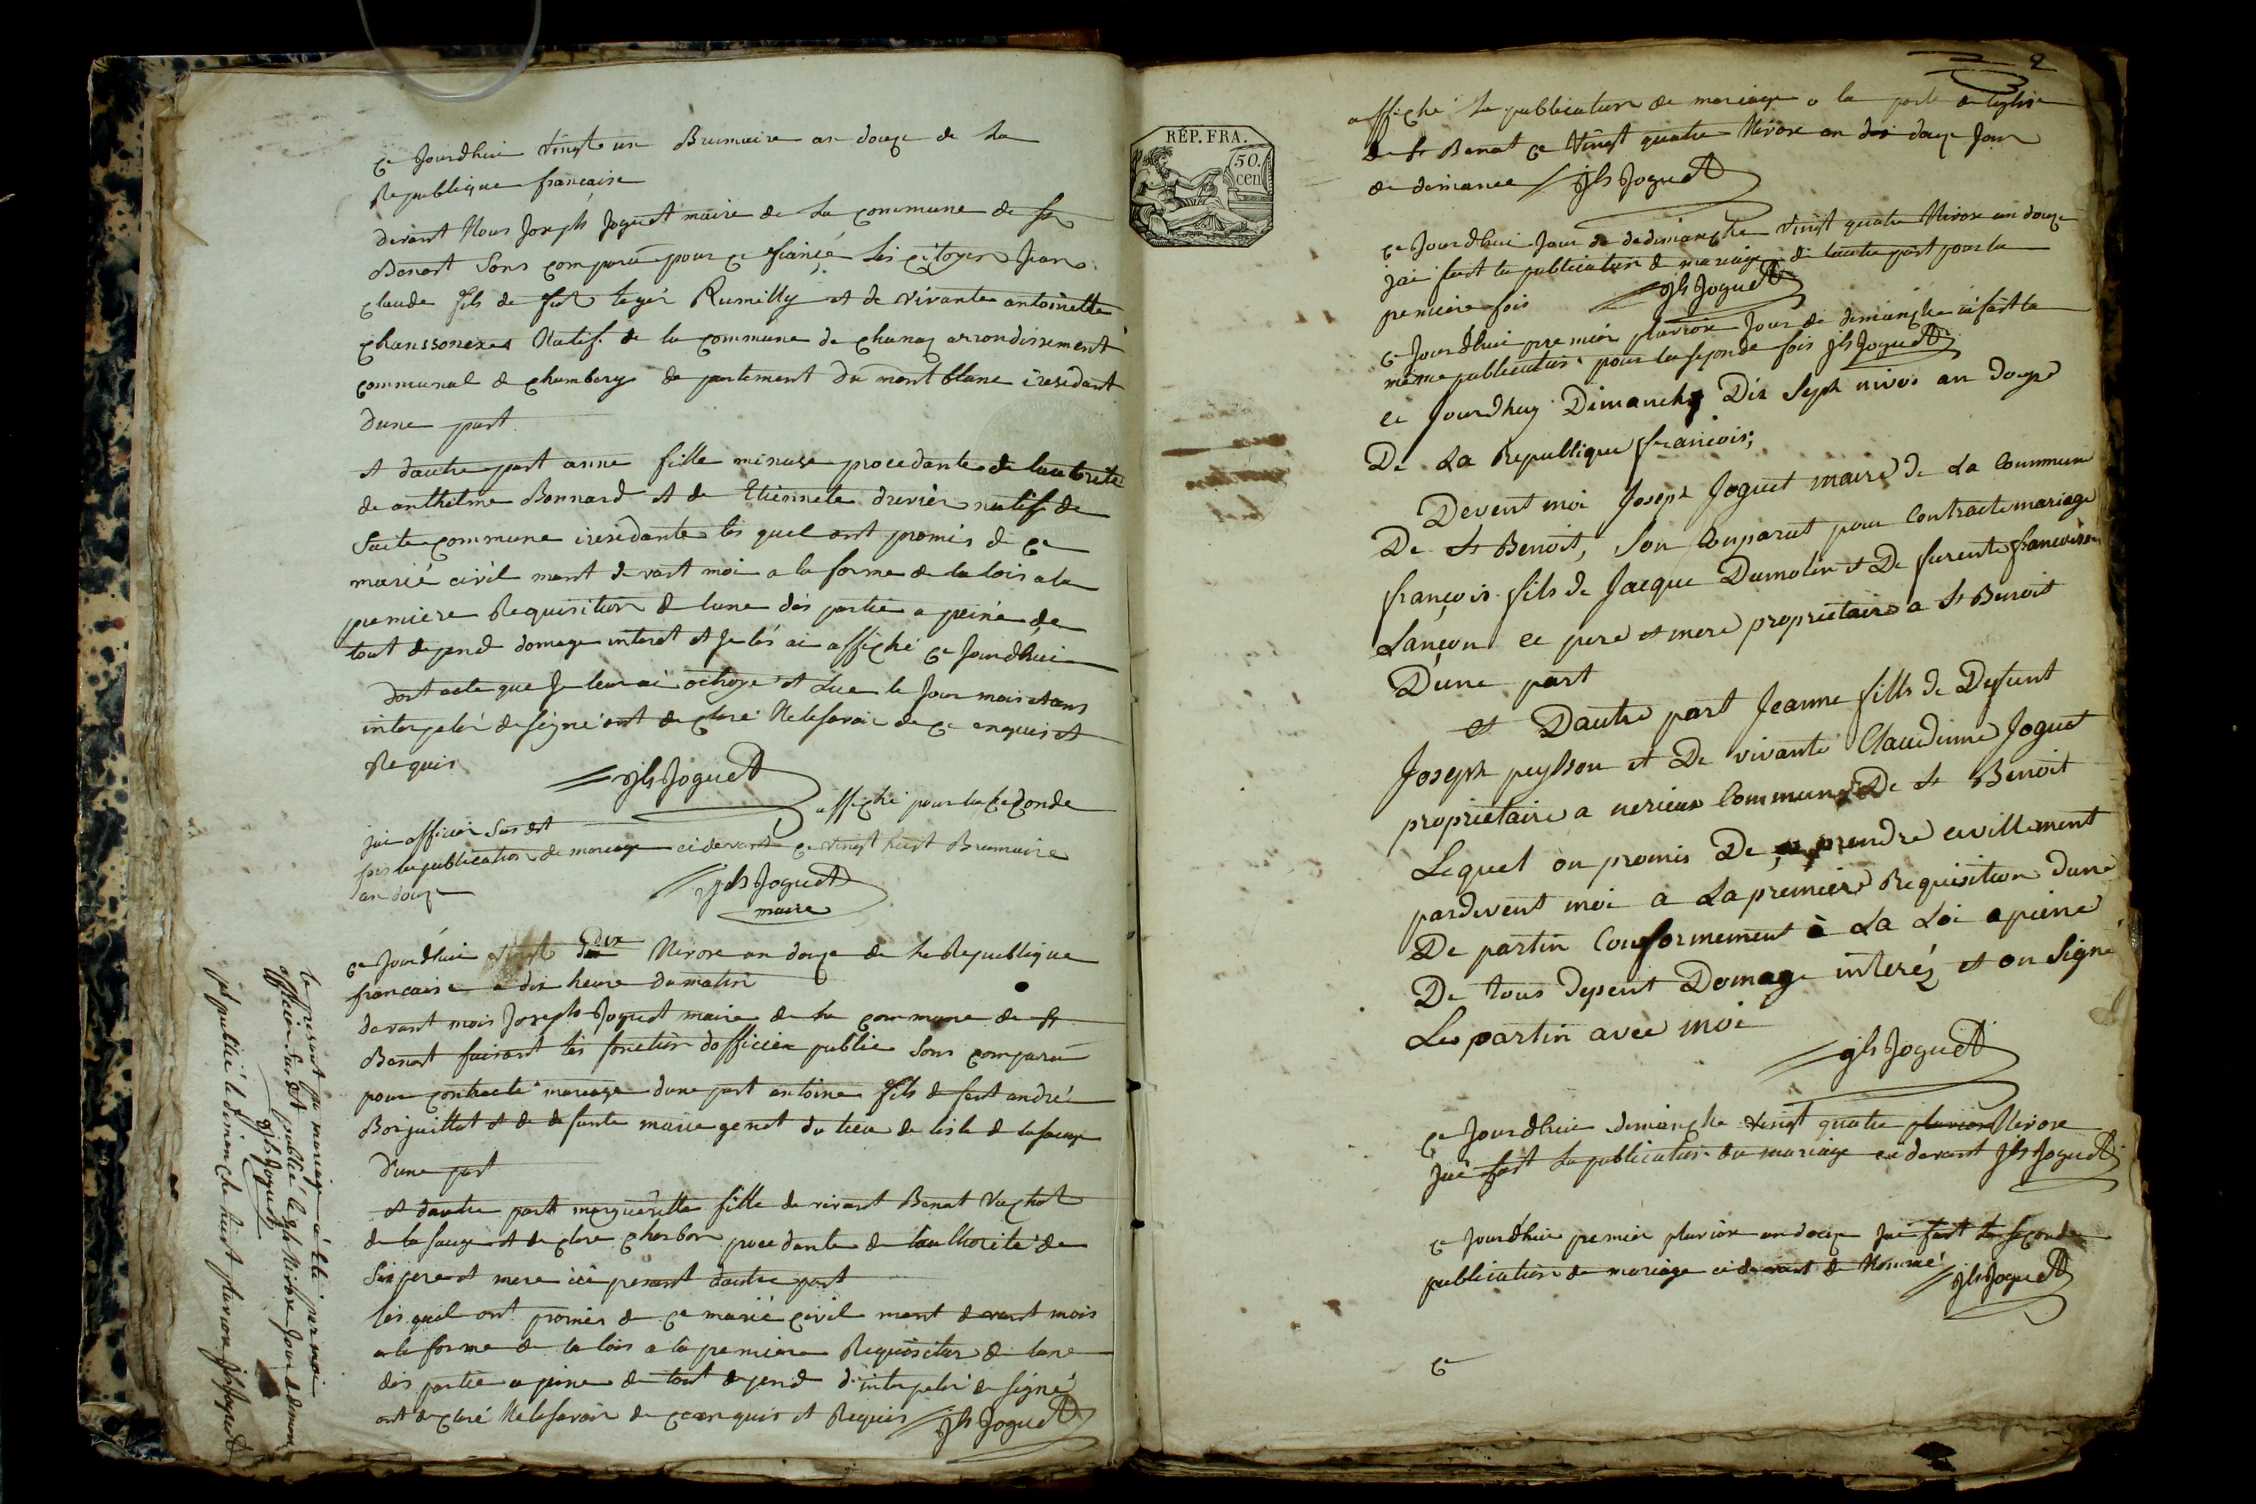 ce Jourdhui vingt un Brumaire an douze de La
Republique francaise
devant Nous Joseph Joguet maire de La commune de St
Benoit Sons comparu pour ce fiancé Les citoyen Jean
claude fils de feu legér Rumilly et de vivante antoinette
Natif de la commune de chanaz arrondissement
communal de chambery departement du mont blanc iresidant
dune part
et dautre part anne fille mineure procedante de lautorite
de anthelme Bonnard et de Etiennete druvier natif de
commune iresidante les quel ont promis de ce
marié civil ment devant moi a la forme de la lois a la
premiere Requisition de lune des partie a peine de
tout depend domage interet et Je les ai affiché ce Jourdhui
dont acte que Je leur ai octroye et Lue le Jour mois et ans
interpelér de signé ont de claré Ne le savoir de ce enquis et
Requis Jph Joguet
jai officier Sus dit affiché pour la seconde
fois la publication de mariage ci devant ce vingt huit Brumaire
an douze Jph Joguet
maire
ce Jourdhui dix Nivose an douze de La Republique
francaise a dix heure du matin
devant mois Joseph Joguet maire de La commune de St
Benoit faisant les fonction dofficier public Sons comparu
pour contracté mariage dune part antoine fils de feut andré
Borjuillot et de defunte marie genet du lieu de lisle de la sauge
d'une part
et dautre part margueritte fille de vivant Benoit Vachot
de la sauge et de clare charbon procedante de lauthorité de
Ses pere et mere ici present dautre part
les quel ont promis de ce marié civil ment devant mois
a la forme de la lois a la premiere Requisition de lune
des partie a peine de tout depend d'interpeler de signé
ont de claré Ne le savoir de ce enquis et Requis Jph Joguet
le present mariage a été par moi
officier Sus dit publié le Nivose Jour de diman
Jph Joguet
publié le dimanche huit pluviose Jph Joguet
2
RÉP. FRA.
50.
cen
affiché La publication de mariage a la porte de leglise
de St Benoit ce Vingt quatre Nivose an douze Jour
de dimance Jph Joguet
ce Jourdhui Jour de dedimanche vingt quatre Nivose an douze
jai fait la publication de mariage de lautre part pour la
premiere fois Jph Joguet
ce Jourdhui premier pluviose Jour de dimanche ai fait la
meme publication pour la seconde fois Jph Joguet
ce Jourdhuy Dimanche Dix Sept nivos an douze
De La Republique francois;
Devent moi Joseph Joguet maire de La Commune
De St Benoit, Son Conparut pour Contracte mariage
françois fils de Jacque Dumolin et De furente francoise
Lançon ce pere et mere proprietaire a St Benoit
D'une part
et Dautre part Jeanne fills de Defunt
Joseph peysson et De vivante Claudinne Joguet
proprietaire a verieux Commune De St Benoit
Lequel on promis De prendre civillement
pardevent moi a La premiere Requisition dune
De partin Conformement à La Loi a peine
De tous depent Domage interéz et on Signé
Les partin avec moi
Jph Joguet
ce Jourdhui dimanche vingt quatre pluviose Nivose
Jai fait La publication du mariage ci devant Jph Joguet
ce Jourdhui premier pluviose an douze Jai fait la seconde
publication de mariage ci devant de Nommé Jph Joguet
ce